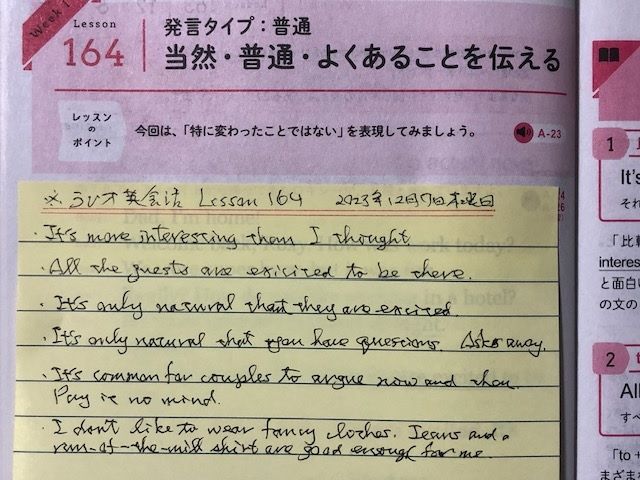 Week 1
Lesson
164
発言タイプ：普通
当然・普通・よくあることを伝える
レッスン
の
ポイント
今回は、「特に変わったことではない」を表現してみましょう。
A-23
※ ラジオ英会話 Lesson 164 2023年12月7日木曜日
・It's more interesting than I thought.
・All the guests are excited to be there.
・It's only natural that they are excited.
・It's only natural that you have questions. Ask away.
・It's common for couples to argue now and then.
Pay it no mind.
・I don't like to wear fancy clothes. Jeans and a
run-of-the-mill shirt are good enough for me.
today?
in a hotel?
1
It's
それ
「比較
interes
と面白い
の文の
2
All
すべ
「to +